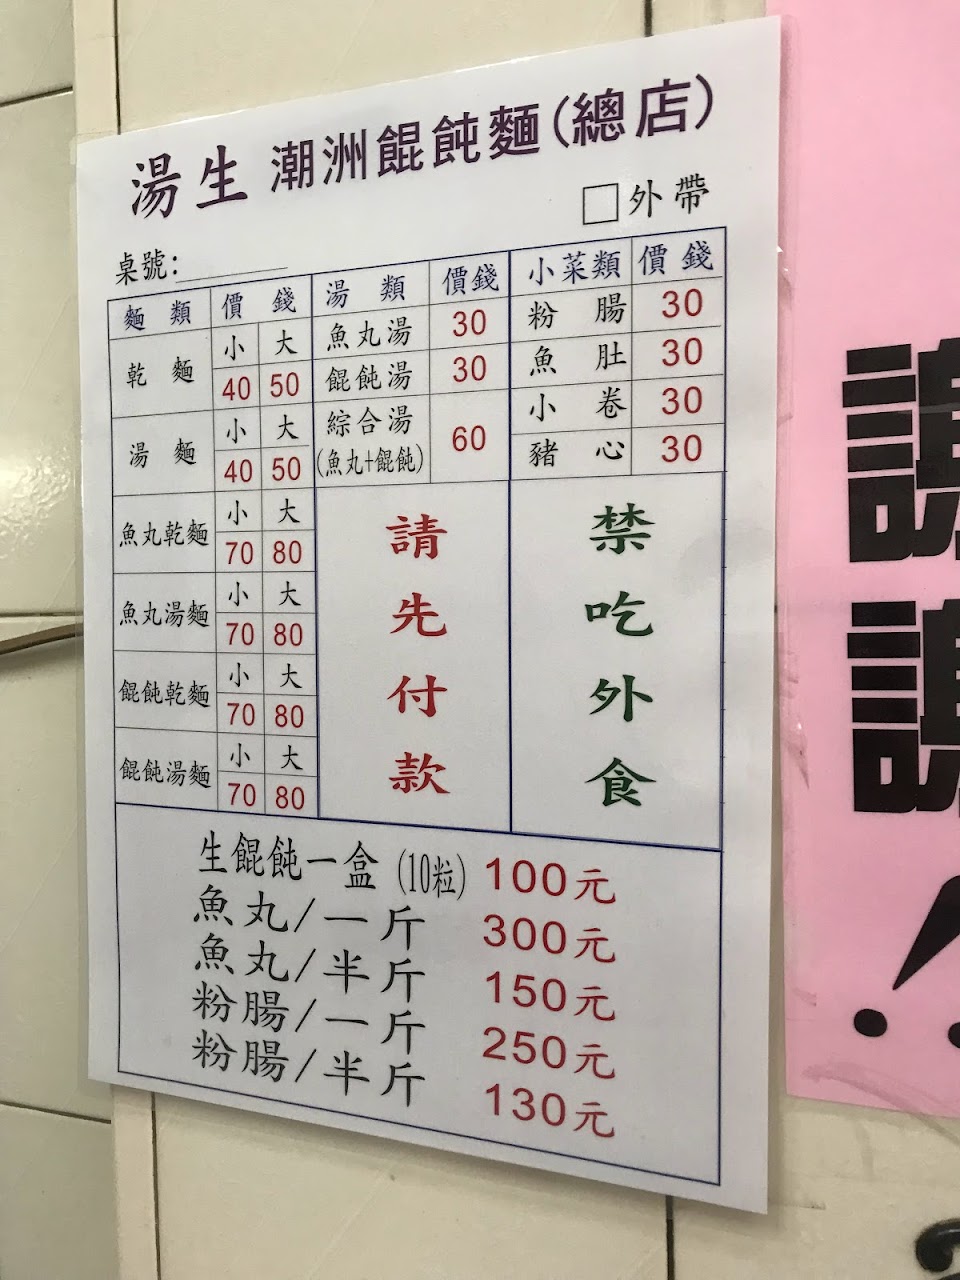 湯生 潮洲餛飩麵(總店)
□外帶
桌號:
麵類 價錢 湯類 價錢 小菜類 價錢
乾麵 小 大
40 50
湯麵 小 大
40 50
魚丸乾麵 小 大
70 80
魚丸湯麵 小 大
70 80
餛飩乾麵 小 大
70 80
餛飩湯麵 小 大
70 80
魚丸湯 30
餛飩湯 30
綜合湯
(魚丸+餛飩) 60
粉腸 30
魚肚 30
小卷 30
豬心 30
請先付款
禁吃外食
生餛飩一盒(10粒) 100元
魚丸/一斤 300元
魚丸/半斤 150元
粉腸/一斤 250元
粉腸/半斤 130元